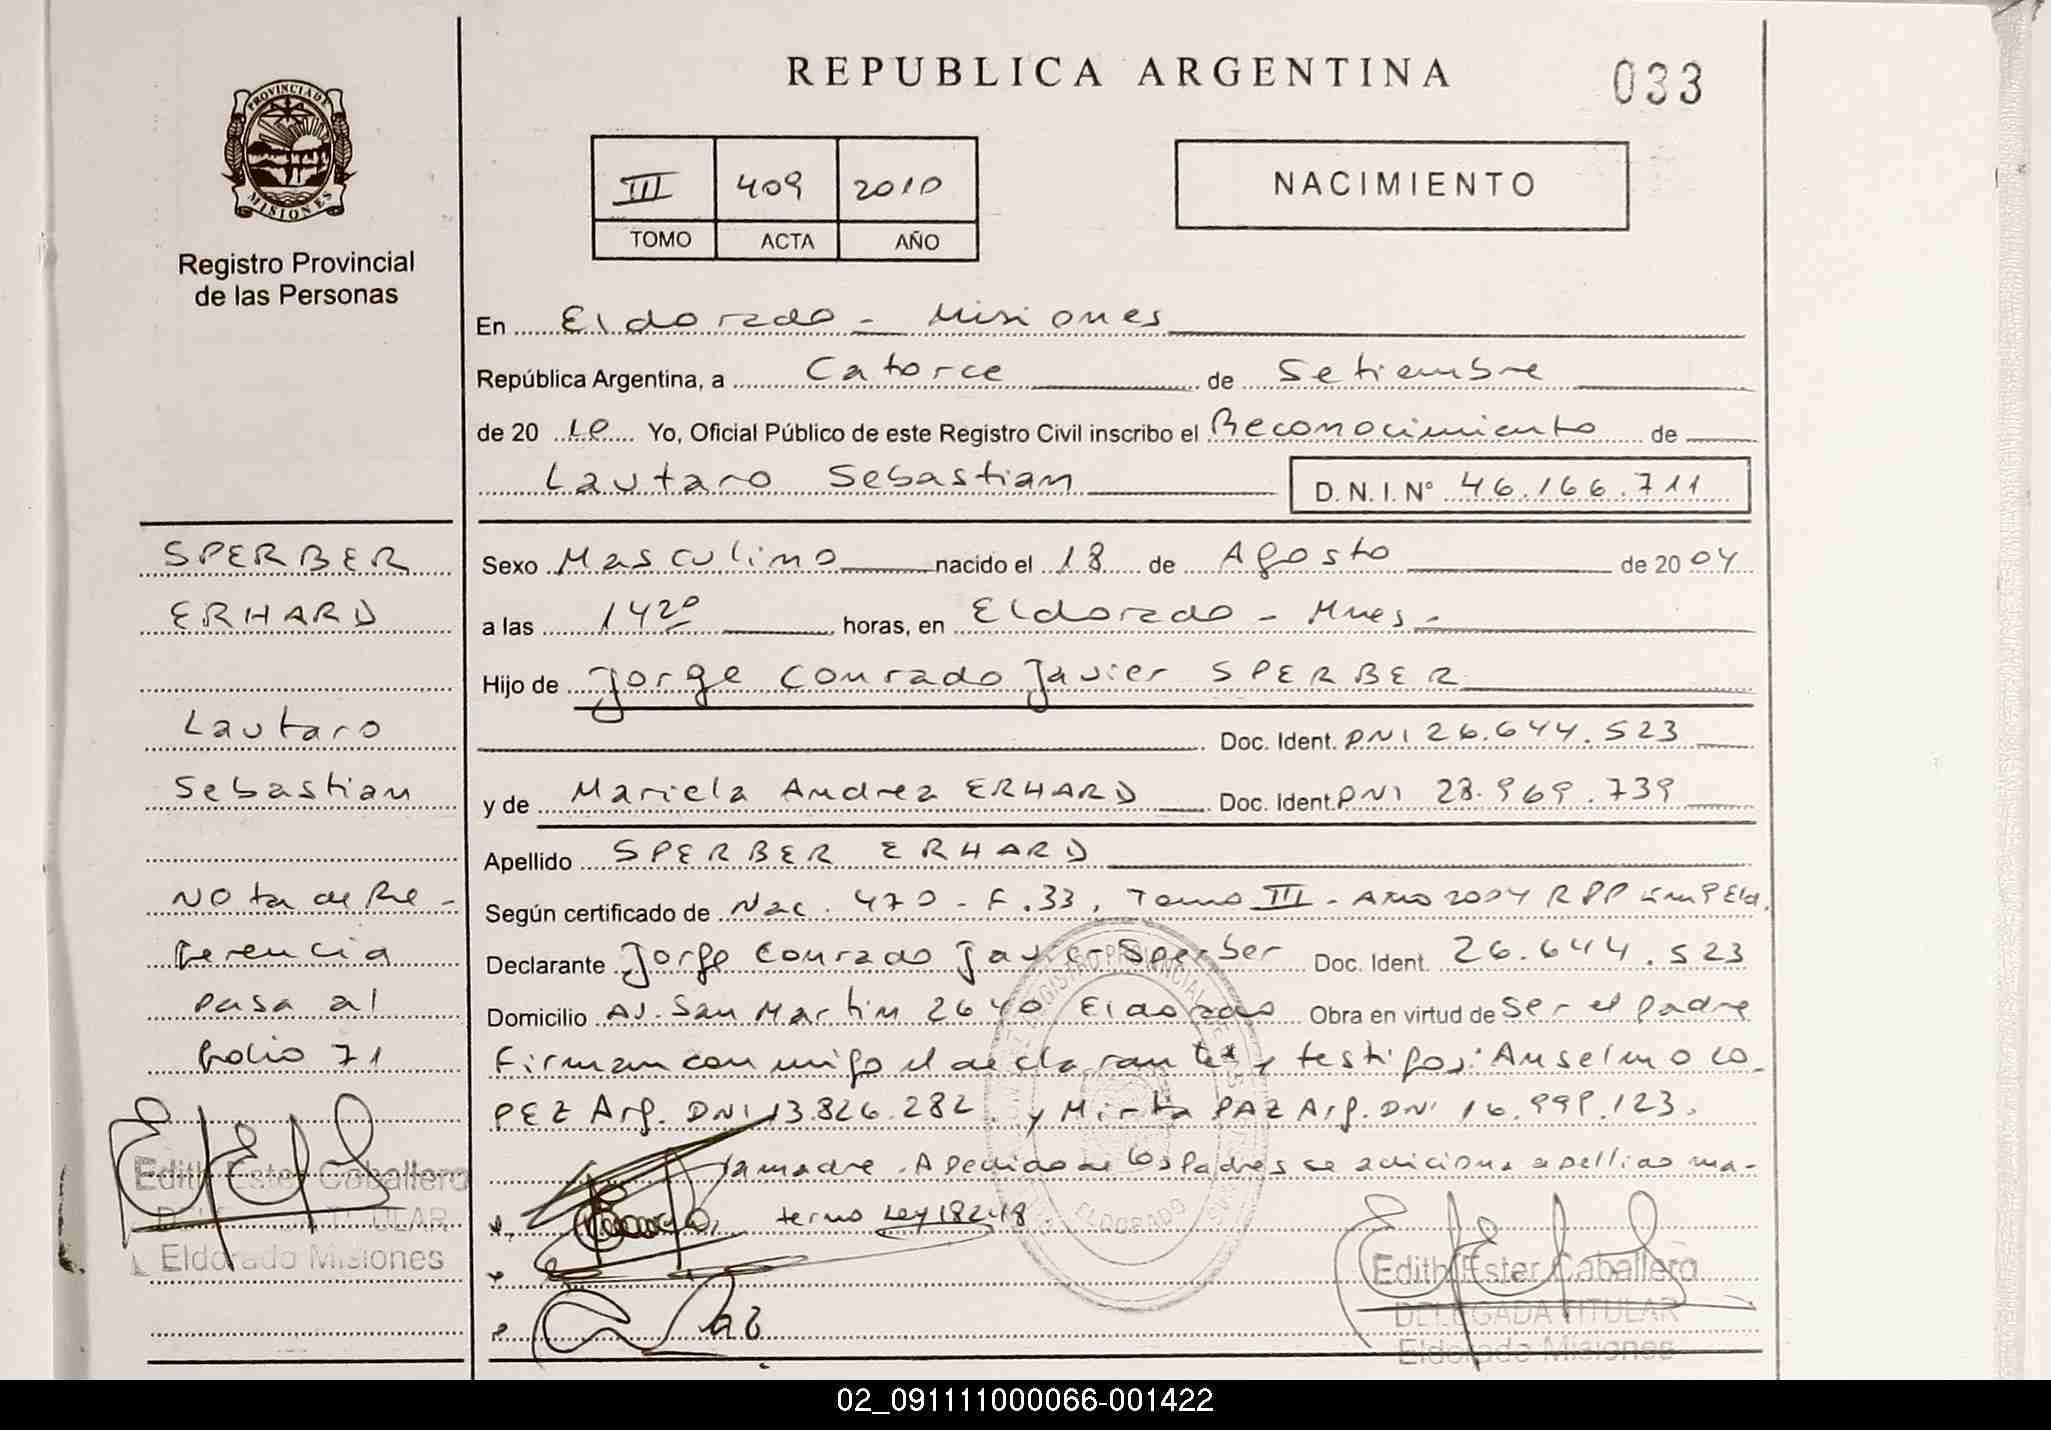 REPUBLICA ARGENTINA
033
PROVINCIA DE
MISIONES
Registro Provincial
de las Personas
III 409 2010
TOMO ACTA AÑO
NACIMIENTO
En Eldorado - Misiones
República Argentina, a Catorce de Setiembre
de 20 10 Yo, Oficial Público de este Registro Civil inscribo el Reconocimiento de
Lautaro Sebastian D. N. I. N° 46.166.711
SPERBER
ERHARD
Lautaro
Sebastian
Nota de Re-
ferencia
pasa al
folio 71
Edith Ester Caballero
DELEGADA TITULAR
Eldorado Misiones
Sexo Masculino nacido el 18 de Agosto de 2004
a las 14 20 horas, en Eldorado - Mnes -
Hijo de Jorge Conrado Javier SPERBER
Doc. Ident. DNI 26.644.523
y de Mariela Andrea ERHARD Doc. Ident. DNI 28.969.739
Apellido SPERBER ERHARD
Según certificado de Nac. 470 - F.33, Tomo III - Año 2004 RPP
Declarante Jorge Conrado Javier Sperber Doc. Ident. 26.644.523
Domicilio Av. San Martin 2640 Eldorado Obra en virtud de Ser el padre
Firman conmigo el declarante y testigos: Anselmo LO
PEZ Arg. DNI 13.826.282 y Mirta PAZ Arg. DNI 16.999.123.
la madre. A pedido de los Padres se adiciona apellido ma-
terno Ley 18248
REGISTRO PROVINCIAL DE LAS PERSONAS
ELDORADO
Edith Ester Caballero
DELEGADA TITULAR
Eldorado Misiones
02_091111000066-001422